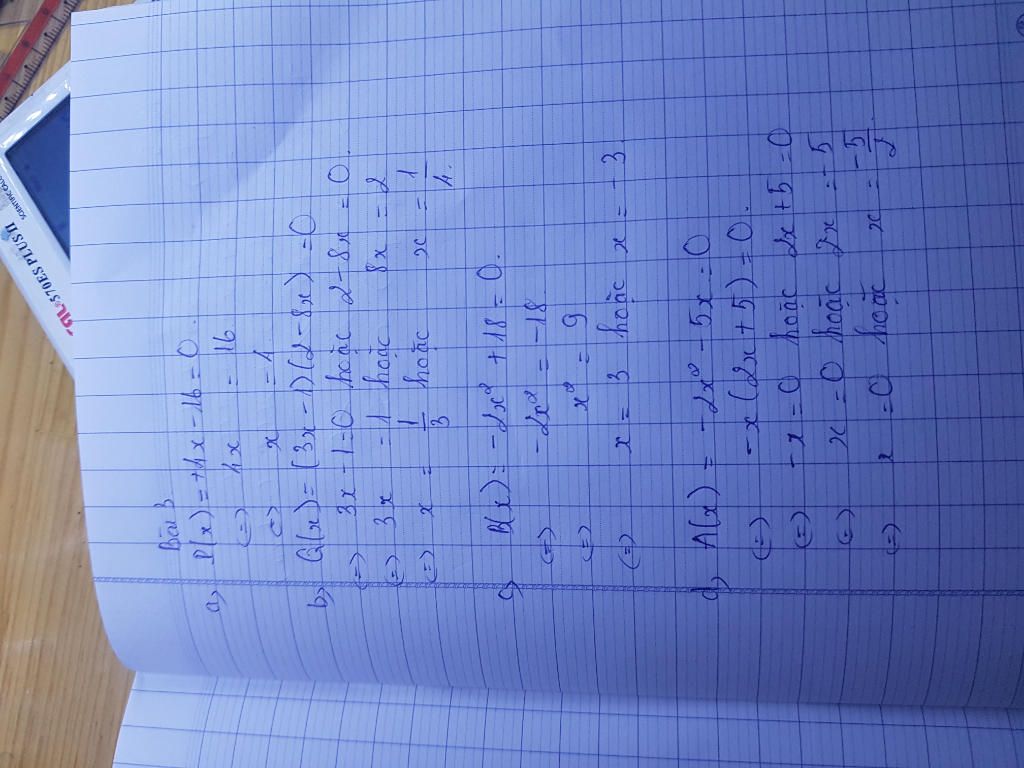 Bài 3
a) P(x) = +4x - 16 = 0.
(=) 4x = 16
(=) x = 4
b) Q(x) = (3x - 1)(2 - 8x) = 0
(=) 3x - 1 = 0 hoặc 2 - 8x = 0.
(=) 3x = 1 hoặc 8x = 2
(=) x = 1/3 hoặc x = 1/4.
c) B(x) = -2x² + 18 = 0.
(=) -2x² = -18.
(=) x² = 9
(=) x = 3 hoặc x = -3.
d) A(x) = -2x² - 5x = 0
(=) -x(2x + 5) = 0.
(=) -x = 0 hoặc 2x + 5 = 0
(=) x = 0 hoặc 2x = -5
(=) x = 0 hoặc x = -5/2.
570ES PLUS II